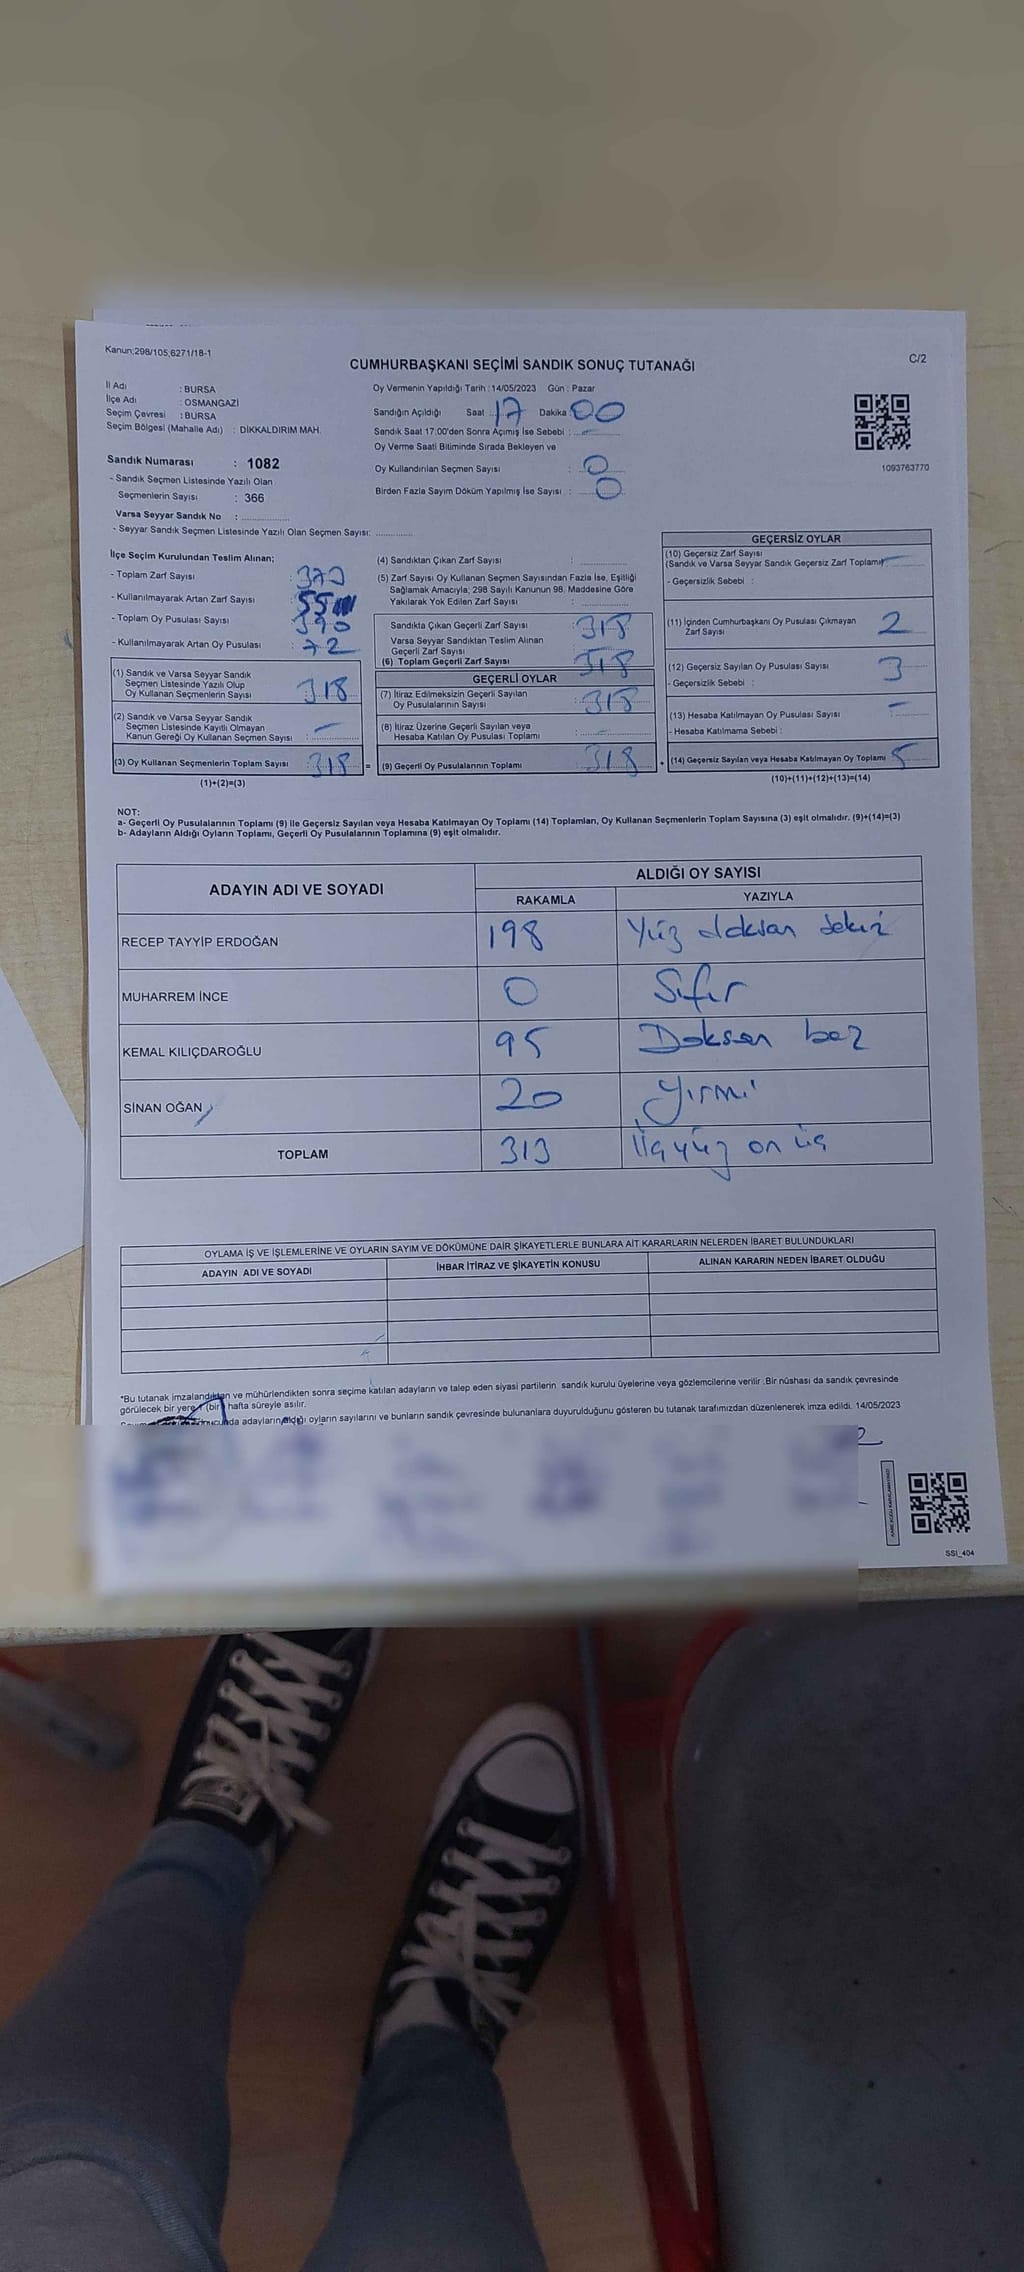 Kanun;298/105,6271/18-1
C/2
CUMHURBAŞKANI SEÇİMİ SANDIK SONUÇ TUTANAĞI
İl Adı : BURSA
İlçe Adı : OSMANGAZİ
Seçim Çevresi : BURSA
Seçim Bölgesi (Mahalle Adı) : DİKKALDIRIM MAH.
Sandık Numarası : 1082
- Sandık Seçmen Listesinde Yazılı Olan
Seçmenlerin Sayısı : 366
Varsa Seyyar Sandık No : ................
- Seyyar Sandık Seçmen Listesinde Yazılı Olan Seçmen Sayısı: ............
Oy Vermenin Yapıldığı Tarih : 14/05/2023 Gün : Pazar
Sandığın Açıldığı Saat : 17 Dakika 00
Sandık Saat 17:00'den Sonra Açımış İse Sebebi :
Oy Verme Saati Bitiminde Sırada Bekleyen ve
Oy Kullandırılan Seçmen Sayısı : 0
Birden Fazla Sayım Döküm Yapılmış İse Sayısı : 0
1093763770
İlçe Seçim Kurulundan Teslim Alınan;
- Toplam Zarf Sayısı : 370
- Kullanılmayarak Artan Zarf Sayısı : 55
- Toplam Oy Pusulası Sayısı : 390
- Kullanılmayarak Artan Oy Pusulası : 72
(1) Sandık ve Varsa Seyyar Sandık
Seçmen Listesinde Yazılı Olup
Oy Kullanan Seçmenlerin Sayısı : 318
(2) Sandık ve Varsa Seyyar Sandık
Seçmen Listesinde Kayıtlı Olmayan
Kanun Gereği Oy Kullanan Seçmen Sayısı : -
(3) Oy Kullanan Seçmenlerin Toplam Sayısı : 318
(1)+(2)=(3)
(4) Sandıktan Çıkan Zarf Sayısı : ............
(5) Zarf Sayısı Oy Kullanan Seçmen Sayısından Fazla İse, Eşitliği
Sağlamak Amacıyla; 298 Sayılı Kanunun 98. Maddesine Göre
Yakılarak Yok Edilen Zarf Sayısı : ............
Sandıkta Çıkan Geçerli Zarf Sayısı : 318
Varsa Seyyar Sandıktan Teslim Alınan
Geçerli Zarf Sayısı
(6) Toplam Geçerli Zarf Sayısı : 318
GEÇERLİ OYLAR
(7) İtiraz Edilmeksizin Geçerli Sayılan
Oy Pusulalarının Sayısı : 318
(8) İtiraz Üzerine Geçerli Sayılan veya
Hesaba Katılan Oy Pusulası Toplamı : -
= (9) Geçerli Oy Pusulalarının Toplamı : 318
GEÇERSİZ OYLAR
(10) Geçersiz Zarf Sayısı
(Sandık ve Varsa Seyyar Sandık Geçersiz Zarf Toplamı) -
- Geçersizlik Sebebi :
(11) İçinden Cumhurbaşkanı Oy Pusulası Çıkmayan
Zarf Sayısı 2
(12) Geçersiz Sayılan Oy Pusulası Sayısı : 3
- Geçersizlik Sebebi :
(13) Hesaba Katılmayan Oy Pusulası Sayısı : -
- Hesaba Katılmama Sebebi :
+ (14) Geçersiz Sayılan veya Hesaba Katılmayan Oy Toplamı 5
(10)+(11)+(12)+(13)=(14)
NOT:
a- Geçerli Oy Pusulalarının Toplamı (9) ile Geçersiz Sayılan veya Hesaba Katılmayan Oy Toplamı (14) Toplamları, Oy Kullanan Seçmenlerin Toplam Sayısına (3) eşit olmalıdır. (9)+(14)=(3)
b- Adayların Aldığı Oyların Toplamı, Geçerli Oy Pusulalarının Toplamına (9) eşit olmalıdır.
ADAYIN ADI VE SOYADI
ALDIĞI OY SAYISI
RAKAMLA YAZIYLA
RECEP TAYYİP ERDOĞAN 198 Yüz doksan sekiz
MUHARREM İNCE 0 Sıfır
KEMAL KILIÇDAROĞLU 95 Doksan beş
SİNAN OĞAN 20 Yirmi
TOPLAM 313 Üçyüz on üç
OYLAMA İŞ VE İŞLEMLERİNE VE OYLARIN SAYIM VE DÖKÜMÜNE DAİR ŞİKAYETLERLE BUNLARA AİT KARARLARIN NELERDEN İBARET BULUNDUKLARI
ADAYIN ADI VE SOYADI İHBAR İTİRAZ VE ŞİKAYETİN KONUSU ALINAN KARARIN NEDEN İBARET OLDUĞU
*Bu tutanak imzalandıktan ve mühürlendikten sonra seçime katılan adayların ve talep eden siyasi partilerin sandık kurulu üyelerine veya gözlemcilerine verilir .Bir nüshası da sandık çevresinde
görülecek bir yere 1 (bir) hafta süreyle asılır.
adayların aldığı oyların sayılarını ve bunların sandık çevresinde bulunanlara duyurulduğunu gösteren bu tutanak tarafımızdan düzenlenerek imza edildi. 14/05/2023
SSI_404